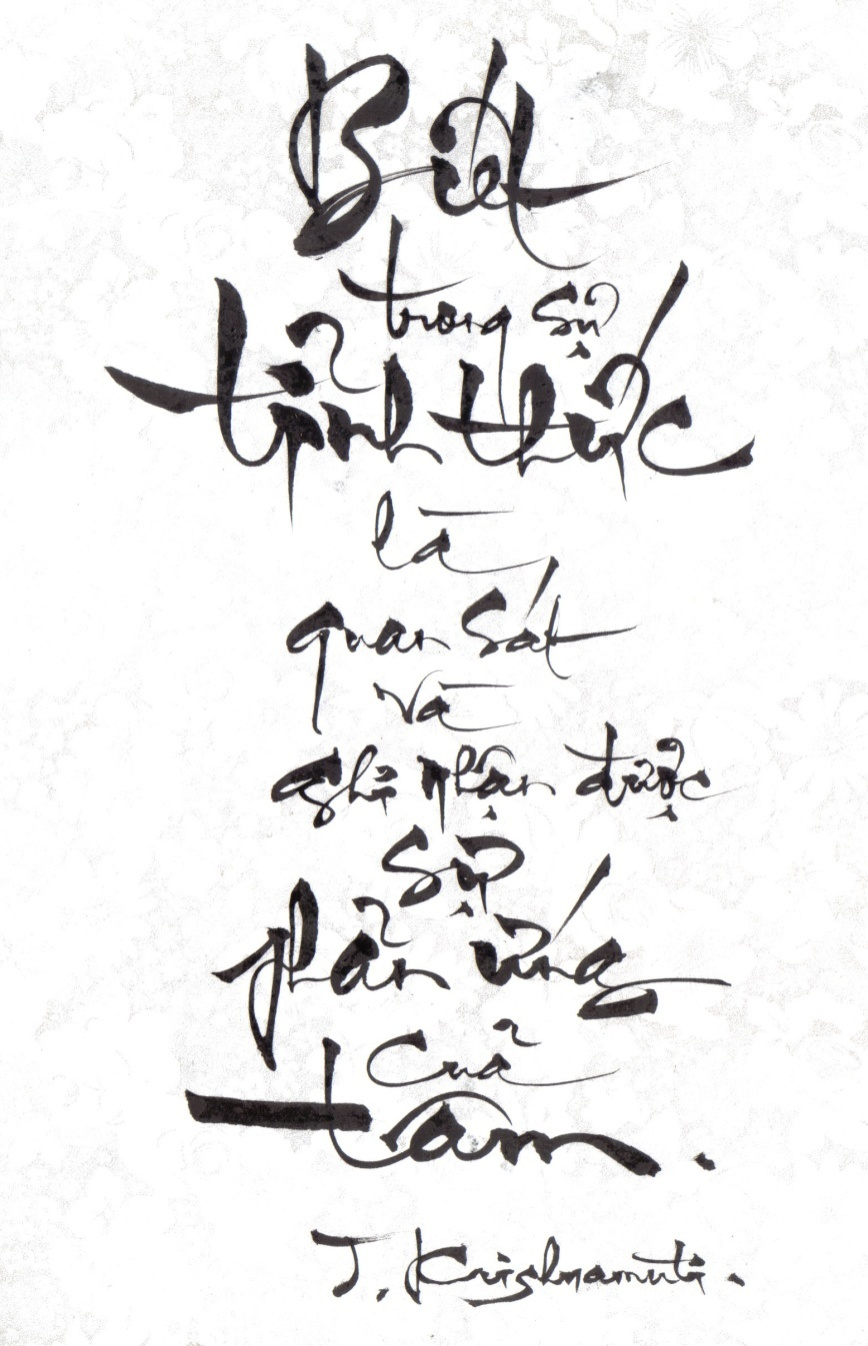 Biết
trong sự
tỉnh thức
là
quan sát
và
ghi nhận được
sự
phản ứng
của
tâm.
J. Krishnamuti.